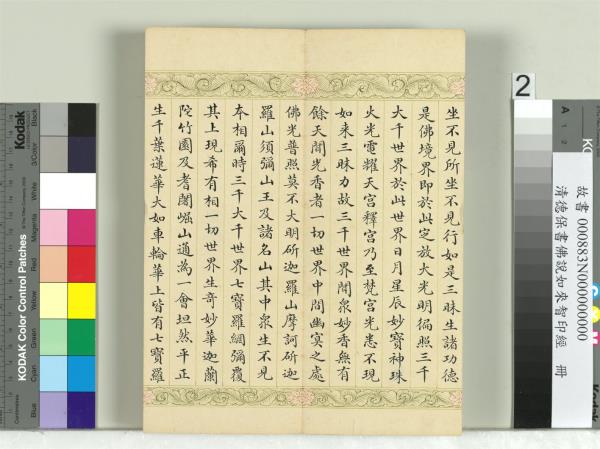 坐不見所坐不見行如是三昧生諸功德
是佛境界即於此定放大光明徧照三千
大千世界於此世界日月星辰妙寶神珠
火光電耀天宮釋宮乃至梵宮光悉不現
如来三昧力故三千世界聞衆妙香無有
餘天聞光香者一切世界中間幽冥之處
佛光普照莫不大明斫迦羅山摩訶斫迦
羅山須彌山王及諸名山其中衆生不見
本相爾時三千大千世界七寶羅網彌覆
其上現希有相一切世界生奇妙華迦蘭
陀竹園及耆闍崛山通為一會坦然平正
生千葉蓮華大如車輪華上皆有七寶羅
2
故書 000883N000000000
清德保書佛說如來智印經 冊
KODAK Color Control Patches
Kodak
Blue
Cyan
Green
Yellow
Red
Magenta
White
3/Color
Black
A
1
2